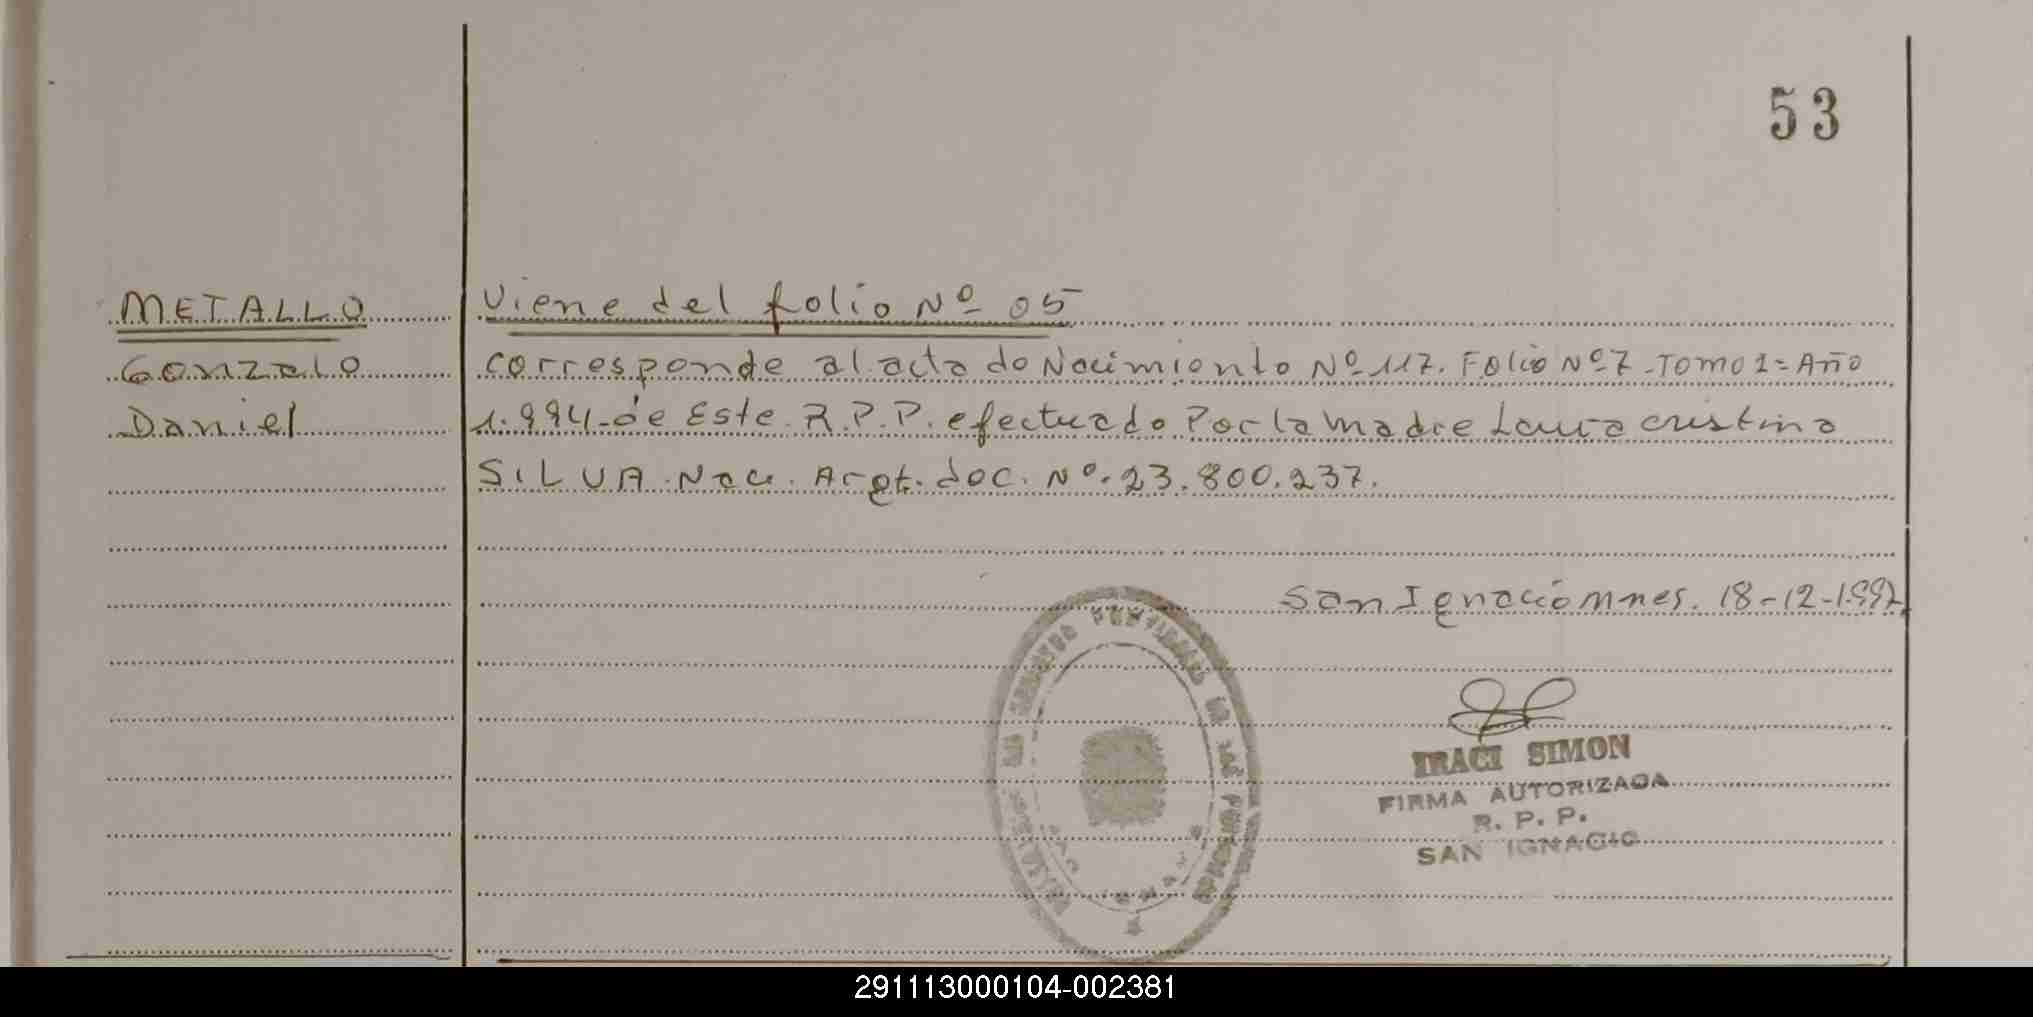 53
METALLO Viene del folio Nº 05
Gonzalo corresponde al acta de Nacimiento Nº 117. Folio Nº 7 - Tomo 1= Año
Daniel 1.994 - de Este R.P.P. efectuado Por la madre Laura cristina
SILVA. Nac. Argt. doc. Nº. 23.800.237.
San Ignacio mnes. 18-12-1.997
IRACI SIMON
FIRMA AUTORIZADA
R. P. P.
SAN IGNACIO
291113000104-002381